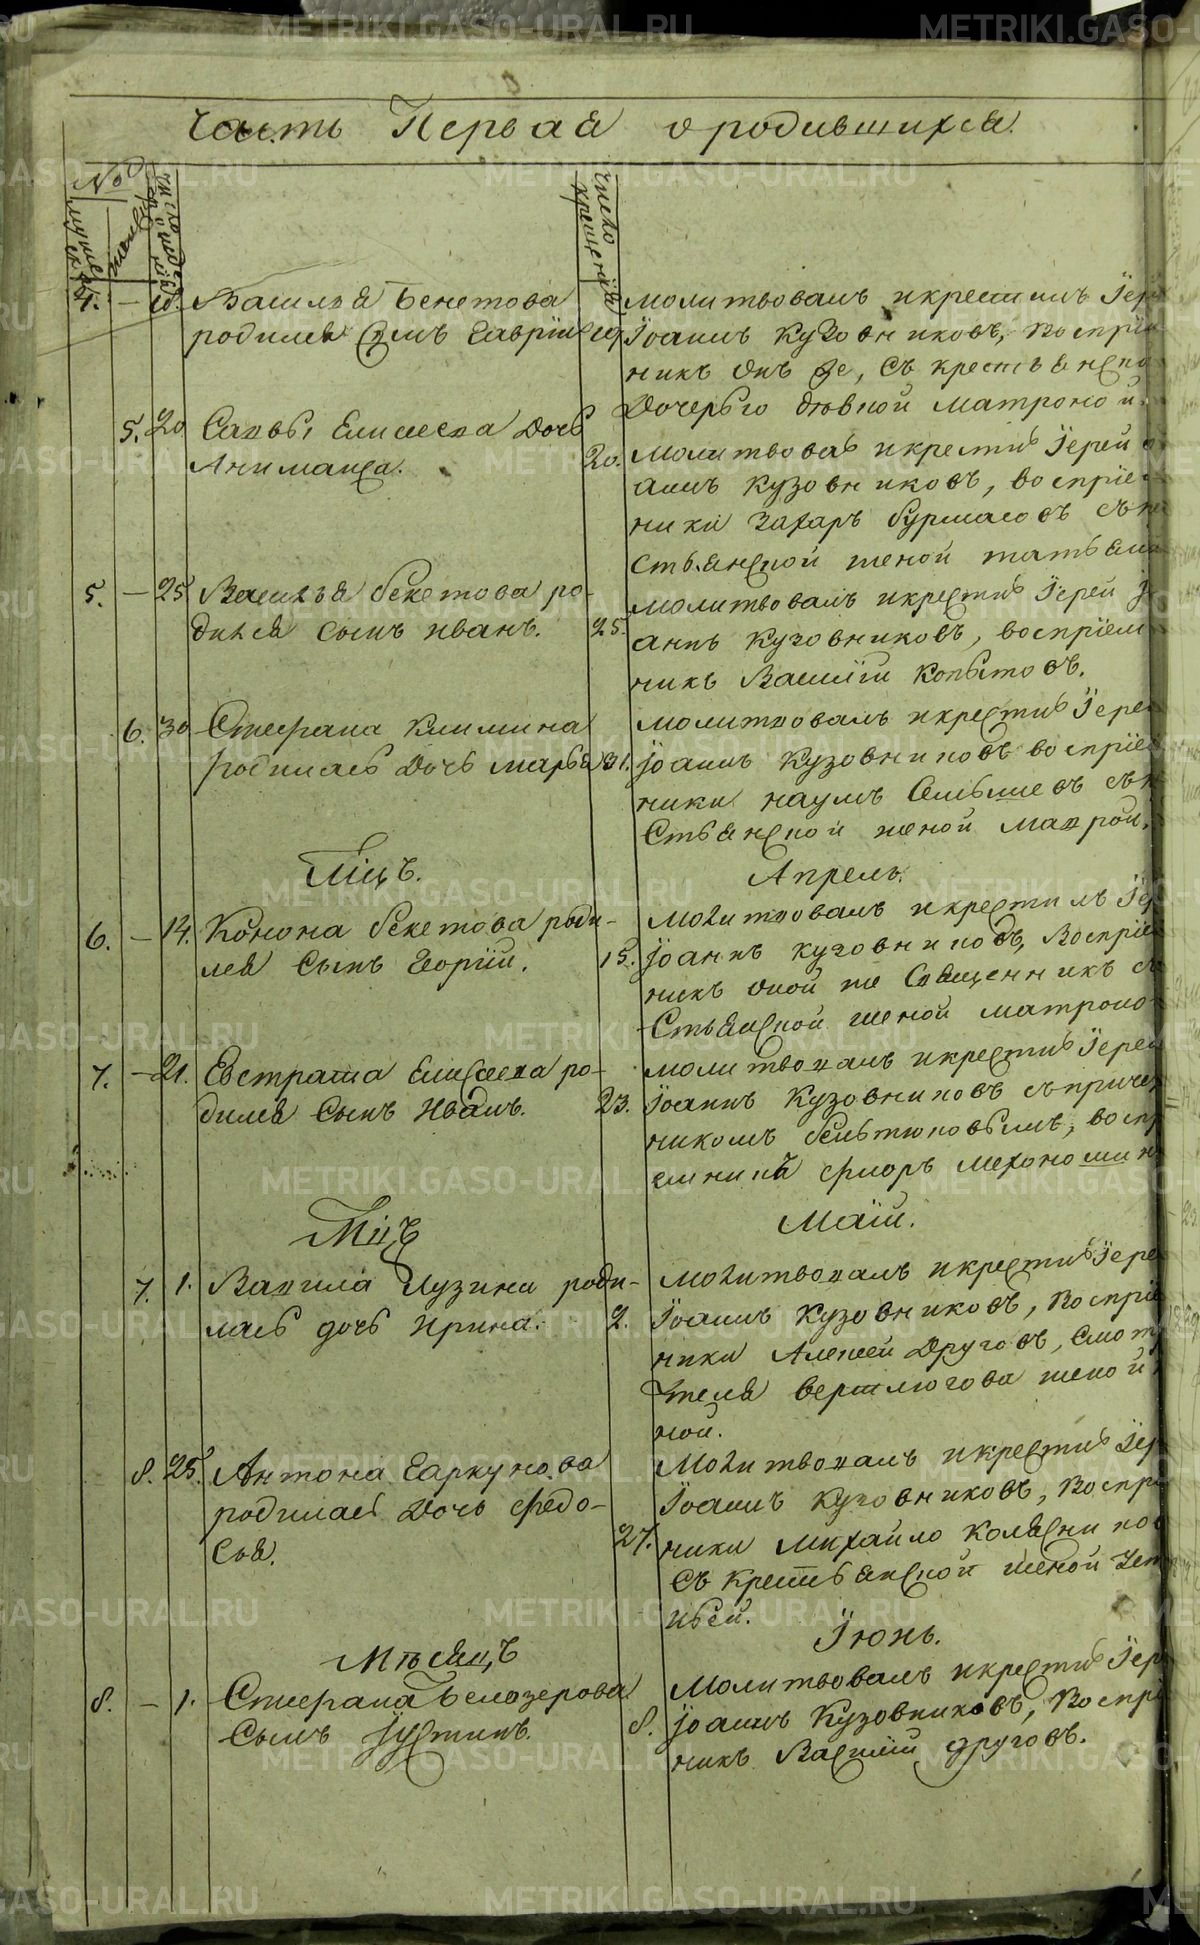 Часть Первая о родившихся.
№
число рожденія
число крещенія
мужеска
женска
4. — 18. Василья Бекетова
родился сынъ Гавріилъ
19.
молитвовалъ и крестилъ Іерей
Іоаннъ Кузовниковъ, воспріем
никъ онъ же, съ крестьянско
дочерью дѣвкой матроной.
5. 20 Саввы Елисеева дочь
Анимаиса.
20.
молитвовалъ и крестилъ Іерей
аннъ Кузовниковъ, воспріем
ники Захаръ бурмасовъ съ к
стьянской женой татьяно
5. — 25 Василья бекетова ро-
дился сынъ иванъ.
25.
молитвовалъ и крестилъ Іерей
аннъ Кузовниковъ, воспріем
никъ Василій Копытовъ.
6. 30 Стефана Климина
родилась дочь марья
31.
молитвовалъ и крестилъ Іерей
Іоаннъ Кузовниковъ воспріем
ники наумъ съ к
стьянской женой маврой.
Мцъ. Апрель.
6. — 14. Конона бекетова роди-
лся сынъ Георгій.
15.
Молитвовалъ и крестилъ Іер
Іоаннъ кузовниковъ, воспріем
никъ оной же Священникъ съ
стьянской женой матроно
7. — 21. Евстрата Елисеева ро-
дился сынъ Иванъ.
23.
молитвовалъ и крестилъ Іерей
Іоаннъ Кузовниковъ съ причет
никомъ бельтюковымъ, воспр
емникъ флоръ
Мцъ Маій.
7. 1. Вавила Пузина роди-
лась дочь Ирина.
2.
Молитвовалъ и крестилъ Іере
Іоаннъ Кузовниковъ, воспріе
ники Алексей Друговъ, смотр
теля вертлюгова женой
ной.
8. 25. Антона Гаркунова
родилась дочь Федо-
сья.
27.
Молитвовалъ и крестилъ Іер
Іоаннъ Кузовниковъ, воспрі
ники михайло
съ крестьянской женой
ньей.
Мѣсяцъ Іюнь.
8. — 1. Стефана Белозерова
сынъ Іустинъ.
8.
Молитвовалъ и крестилъ Іер
Іоаннъ Кузовниковъ, воспрі
никъ Василій друговъ.
METRIKI.GASO-URAL.RU